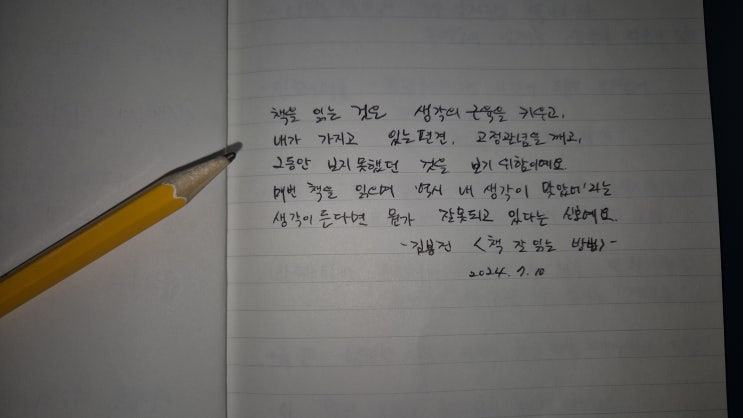 책을 읽는 것은 생각의 근육을 키우고,
내가 가지고 있는 편견, 고정관념을 깨고,
그동안 보지 못했던 것을 보기 위함이에요.
매번 책을 읽으며 '역시 내 생각이 맞았어'라는
생각이 든다면 뭔가 잘못되고 있다는 신호예요.
-김봉진 <책 잘 읽는 방법>-
2024. 7. 10